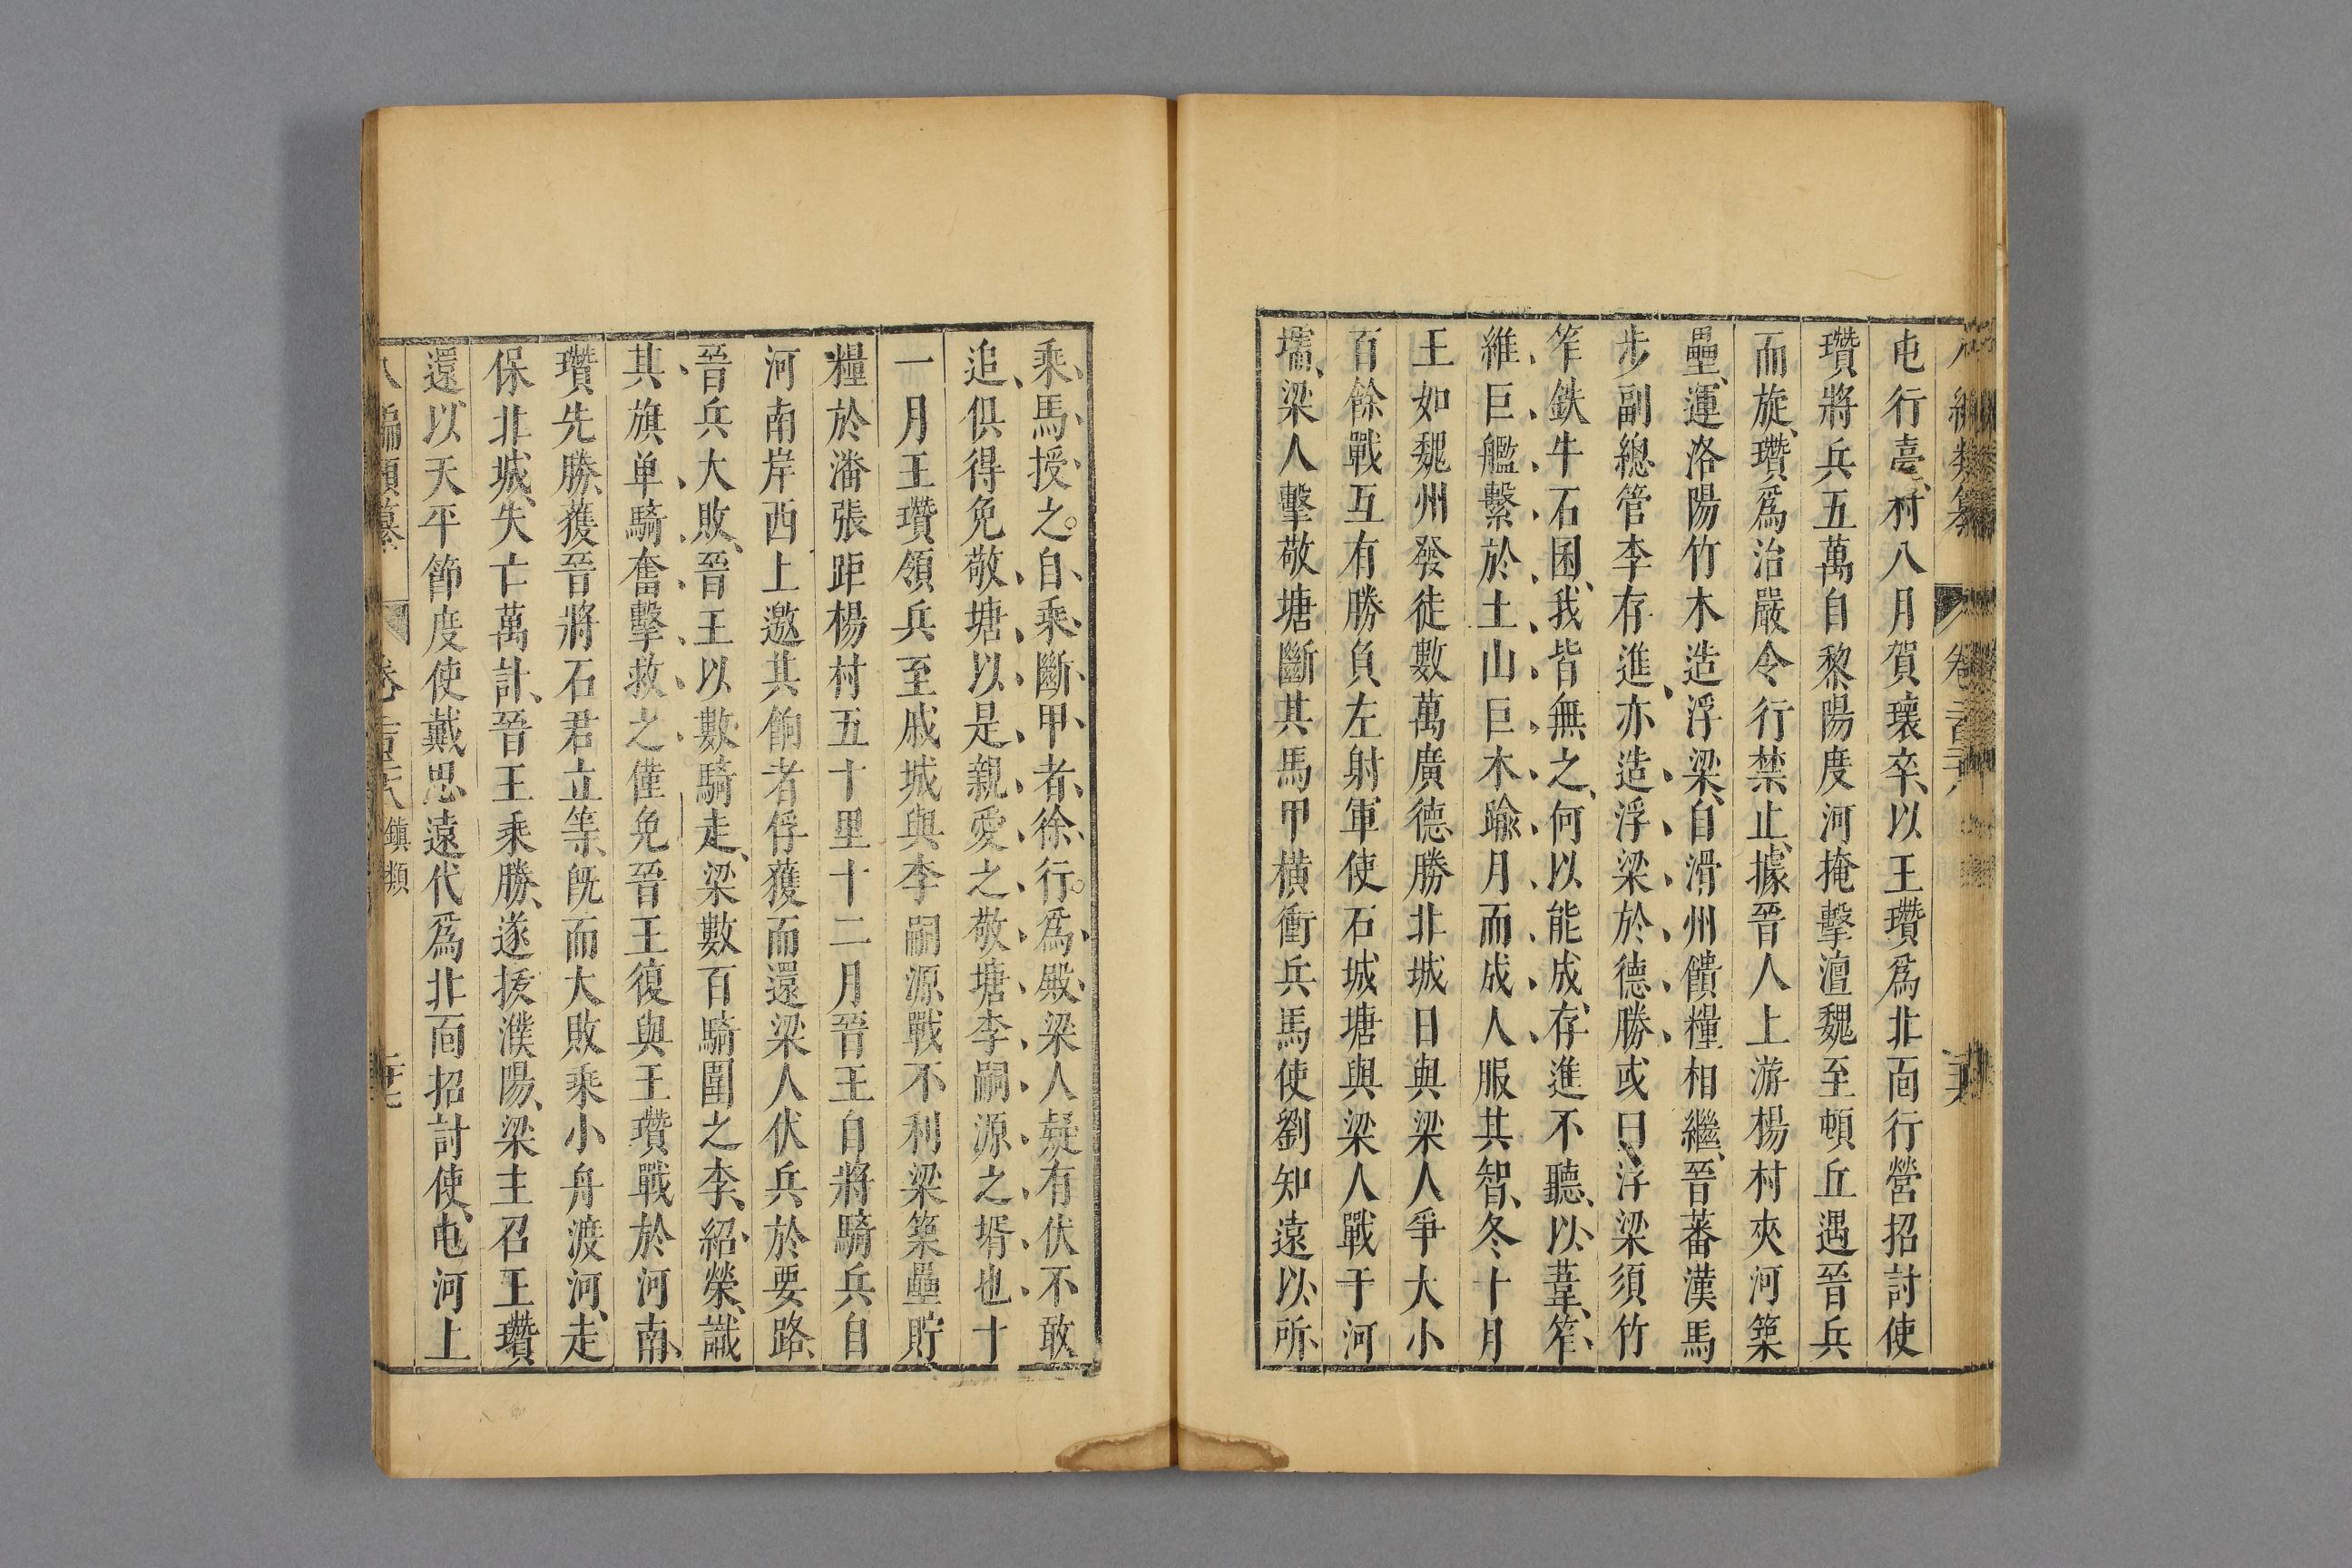 屯行臺村八月賀瓌卒以王瓚爲北面行營招討使
瓚將兵五萬自黎陽度河掩擊澶魏至頓丘遇晉兵
而旋瓚爲治嚴令行禁止據晉人上游楊村夾河築
壘運洛陽竹木造浮梁自滑州饋糧相繼晉蕃漢馬
步副總管李存進亦造浮梁於德勝或曰浮梁須竹
笮鉄牛石囷我皆無之何以能成存進不聽以葦笮
維巨艦繫於土山巨木踰月而成人服其智冬十月
王如魏州發徒數萬廣德勝北城日與梁人爭大小
百餘戰互有勝負左射軍使石城塘與梁人戰于河
壖梁人擊敬塘斷其馬甲橫衝兵馬使劉知遠以所
乘馬授之自乘斷甲者徐行爲殿梁人疑有伏不敢
追俱得免敬塘以是親愛之敬塘李嗣源之壻也十
一月王瓚領兵至戚城與李嗣源戰不利梁築壘貯
糧於潘張距楊村五十里十二月晉王自將騎兵自
河南岸西上邀其餉者俘獲而還梁人伏兵於要路
晉兵大敗晉王以數騎走梁數百騎圍之李紹榮識
其旗单騎奮擊救之僅免晉王復與王瓚戰於河南
瓚先勝獲晉將石君立等旣而大敗乘小舟渡河走
保北城失亡萬計晉王乘勝遂拔濮陽梁主召王瓚
還以天平節度使戴思遠代爲北面招討使屯河上
編類纂 卷 鎮類